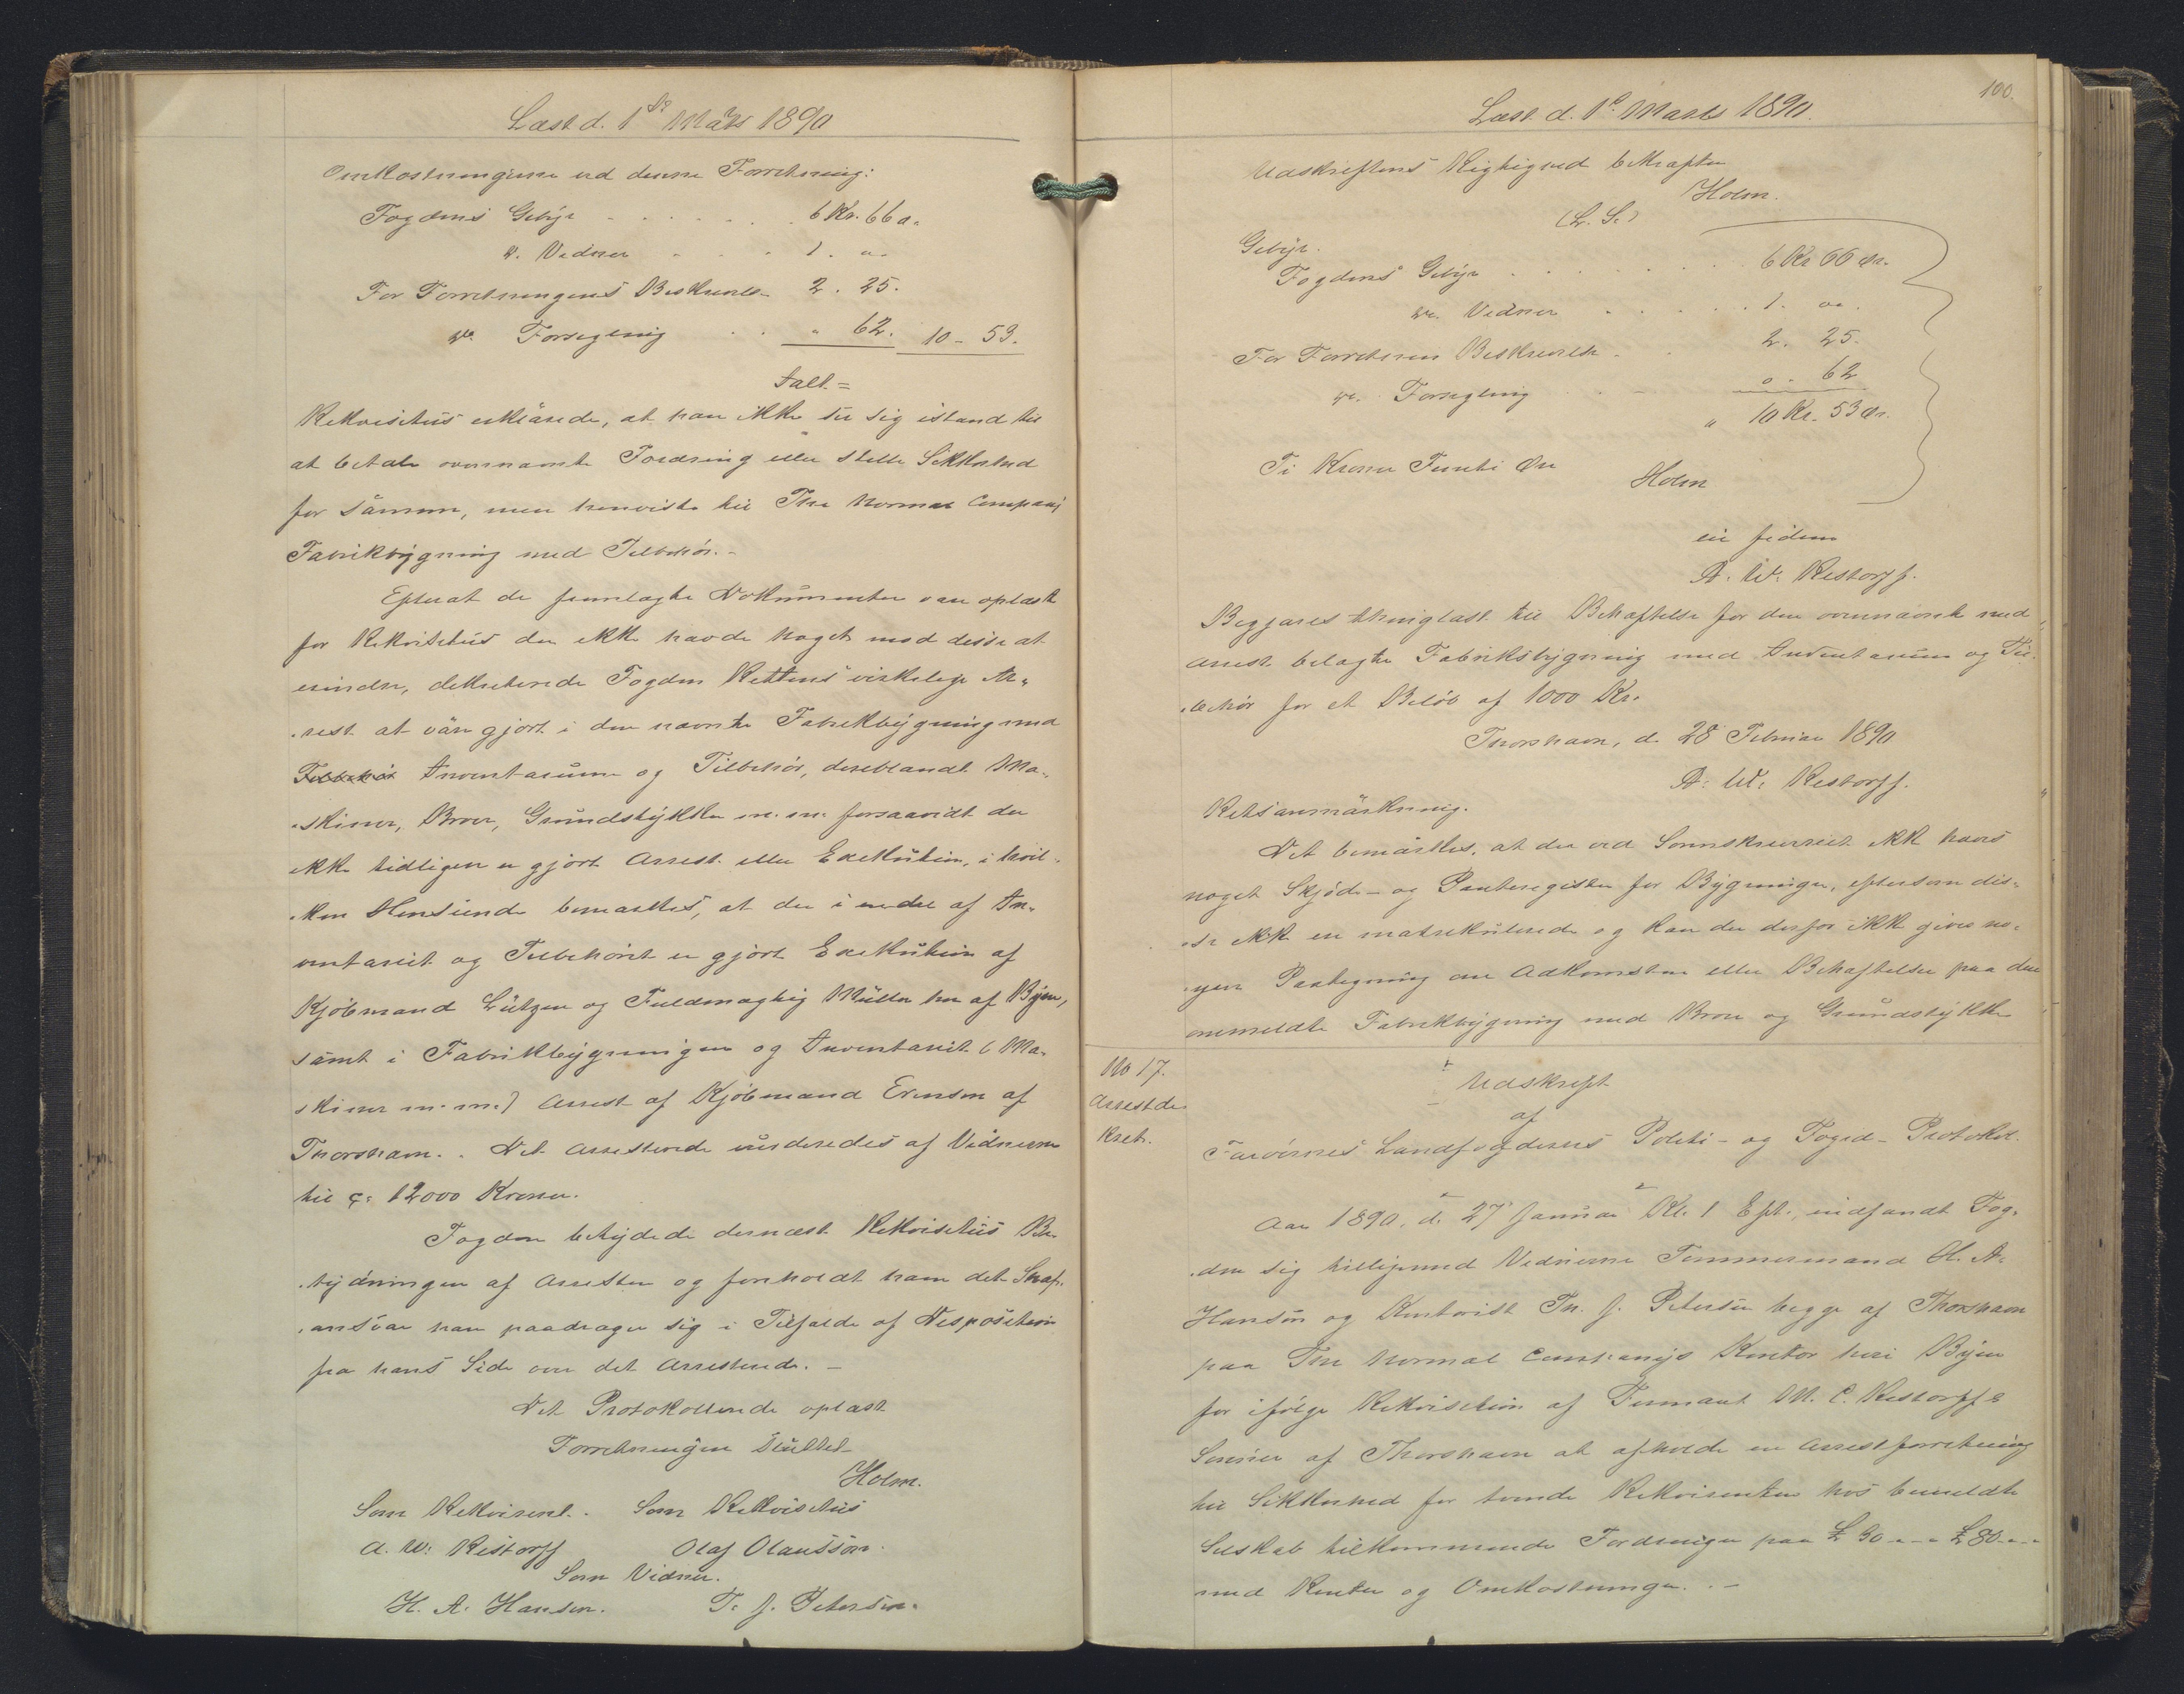 Læst d. 1ste Marts 1890
Omkostningerne ved denne Forretning:
Fogdens Gebyr 6 Kr. 66 ø.
do. Vidner 1. "
For Forretningens Beskrivelse 2. 25.
do. Forsegling " 62. 10 - 53.
Ialt =
Rekvisitus erklærede, at han ikke ser sig istand til
at betale ovennævnte Fordring eller stille Sikkerhed
for samme, men henviste til The Normal Company
Fabrikbygning med Tilbehør. -
Efterat de fremlagte Dokumenter vare oplæste
for Rekvisitus der ikke havde noget mod disse at
erindre, dekreterede Fogden Rettens virkelige Ar-
rest at være gjort i den nævnte Fabrikbygning med
Tilbehør Inventarium og Tilbehør, deriblandt Ma-
skiner, Broer, Grundstykker m. m. forsaavidt der
ikke tidligere er gjort Arrest eller Exekution, i hvil-
ken Henseende bemærkes, at der i en del af In-
ventariet og Tilbehøret er gjort Exekution af
Kjøbmand Lützen og Fuldmægtig Müller her af Byen,
samt i Fabrikbygningen og Inventariet (Ma-
skiner m. m.) Arrest af Kjøbmand Evensen af
Thorshavn. . Det Arresterede vurderedes af Vidnerne
til c: 12000 Kroner.
Fogden betydede dernæst Rekvisitus Be-
tydningen af Arresten og foreholdt ham det Straf-
ansvar han paadrager sig i Tilfælde af Disposition
fra hans Side over det Arresterede. -
Det Protokollerede oplæst
Forretningen sluttet
Holm.
Som Rekvirent. Som Rekvisitus
A. W. Restorff Olaf Olaussön.
Som Vidner.
H. A. Hansen. T. J. Petersen.
100.
Læst d. 1e Marts 1890.
Udskriftens Rigtighed bekræfter
Holm.
(L. S.)
Gebyr.
Fogdens Gebyr 6 Kr 66 Ør.
do. Vidner 1. "
For Forretnens Beskrivelse 2. 25.
do. Forsegling 0. 62
" 10 Kr. 53 Ør.
Ti Kroner Ør
Holm
in fidem
A. W. Restorff.
Begjæres thinglæst til Behæftelse for den ovennævnte med
Arrest belagte Fabriksbygning med Inventarium og Til-
behør for et Beløb af 1000 Kr.
Thorshavn, d. 28 Februar 1890
A. W. Restorff.
Retsanmærkning.
Det bemærkes, at der ved Sorenskriveriet ikke haves
noget Skjøde- og Panteregister for Bygninger, eftersom dis-
se ikke ere matrikulerede og kan der derfor ikke gives no-
gen Paategning om Adkomsten eller Behæftelser paa den
ommeldte Fabrikbygning med Broer og Grundstykke
No 17.
Arrestde-
kret.
Udskrift
af
Færøernes Landfogderies Politi- og Foged-Protokol.
Aar 1890, d. 27 Januar Kl. 1 Eft., indfandt Fog-
den sig tilligemed Vidnerne Tømmermand H. A.
Hansen og Kontorist Th. J. Petersen begge af Thorshavn
paa The Normal Companys Kontor heri Byen
for ifølge Rekvisition af Firmaet M. C. Restorff &
Sønner af Thorshavn at afholde en Arrestforretning
til Sikkerhed for tvende Rekvirenten hos bemeldte
Selskab tilkommende Fordringer paa £ 30 - - £ 80 - -
med Renter og Omkostninger. . -